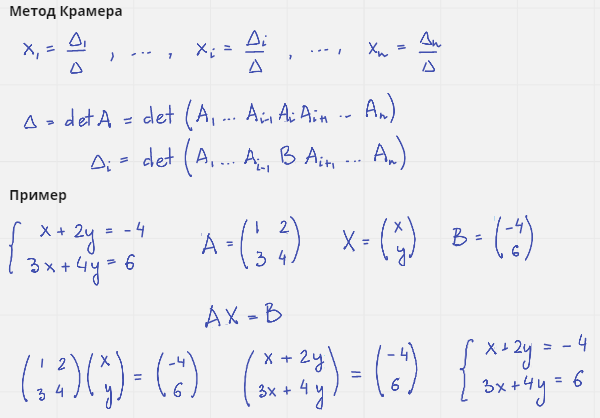 Метод Крамера
x₁ = Δ₁/Δ , ... , xᵢ = Δᵢ/Δ , ... , xₙ = Δₙ/Δ
Δ = det A = det (A₁ ... Aᵢ₋₁ Aᵢ Aᵢ₊₁ ... Aₙ)
Δᵢ = det (A₁ ... Aᵢ₋₁ B Aᵢ₊₁ ... Aₙ)
Пример
{ x + 2y = -4
3x + 4y = 6
A = (1 2
3 4)
X = (x
y)
B = (-4
6)
AX = B
(1 2
3 4) (x
y) = (-4
6)
(x + 2y
3x + 4y) = (-4
6)
{ x + 2y = -4
3x + 4y = 6